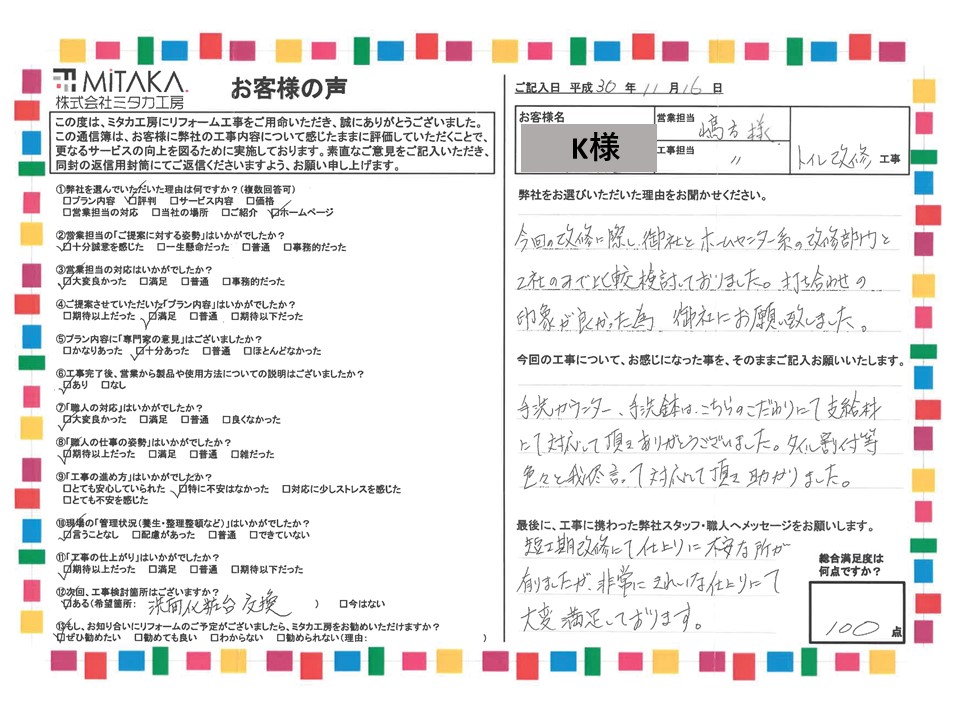 MiTAKA.
株式会社ミタカ工房
お客様の声
この度は、ミタカ工房にリフォーム工事をご用命いただき、誠にありがとうございました。
この通信簿は、お客様に弊社の工事内容について感じたままに評価していただくことで、
更なるサービスの向上を図るために実施しております。素直なご意見をご記入いただき、
同封の返信用封筒にてご返信くださいますよう、お願い申し上げます。
①弊社を選んでいただいた理由は何ですか？(複数回答可)
□プラン内容 □評判 □サービス内容 □価格
□営業担当の対応 □当社の場所 □ご紹介 □ホームページ
②営業担当の「ご提案に対する姿勢」はいかがでしたか？
□十分誠意を感じた □一生懸命だった □普通 □事務的だった
③営業担当の対応はいかがでしたか？
□大変良かった □満足 □普通 □事務的だった
④ご提案させていただいた「プラン内容」はいかがでしたか？
□期待以上だった □満足 □普通 □期待以下だった
⑤プラン内容に「専門家の意見」はございましたか？
□かなりあった □十分あった □普通 □ほとんどなかった
⑥工事完了後、営業から製品や使用方法についての説明はございましたか？
□あり □なし
⑦「職人の対応」はいかがでしたか？
□大変良かった □満足 □普通 □良くなかった
⑧「職人の仕事の姿勢」はいかがでしたか？
□期待以上だった □満足 □普通 □雑だった
⑨「工事の進め方」はいかがでしたか？
□とても安心していられた □特に不安はなかった □対応に少しストレスを感じた
□とても不安を感じた
⑩現場の「管理状況(養生・整理整頓など)」はいかがでしたか？
□言うことなし □配慮があった □普通 □できていない
⑪「工事の仕上がり」はいかがでしたか？
□期待以上だった □満足 □普通 □期待以下だった
⑫次回、工事検討箇所はございますか？
□ある(希望箇所: 洗面化粧台交換 ) □今はない
⑬もし、お知り合いにリフォームのご予定がございましたら、ミタカをお勧めいただけますか？
□ぜひ勧めたい □勧めても良い □わからない □勧められない(理由: )
ご記入日 平成 30 年 11 月 16 日
お客様名
K様
営業担当
様
工事担当
〃
トイレ改修 工事
弊社をお選びいただいた理由をお聞かせください。
今回の改修に際し、御社とホームセンター系の改修部門と
2社のみで比較検討しておりました。打ち合わせの
印象が良かった為、御社にお願い致しました。
今回の工事について、お感じになった事を、そのままご記入お願いいたします。
手洗カウンター、手洗鉢は、こちらのこだわりにて支給材
にて対応して頂きありがとうございました。タイル割付等
色々と我侭言って対応して頂き助かりました。
最後に、工事に携わった弊社スタッフ・職人へメッセージをお願いします。
短工期改修にて仕上りに不安な所が
有りましたが、非常にきれいな仕上りにて
大変満足しております。
総合満足度は
何点ですか？
100 点